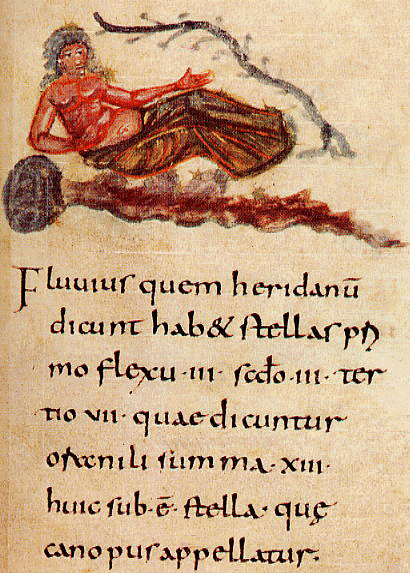 Fluuius quem heridanū
dicunt hab& stellas pri
mo flexu·III· scđo·III· ter
tio VII· quae dicuntur
nili summa·XIII·
huic sub·ē· stella· quę
canopus appellatur.